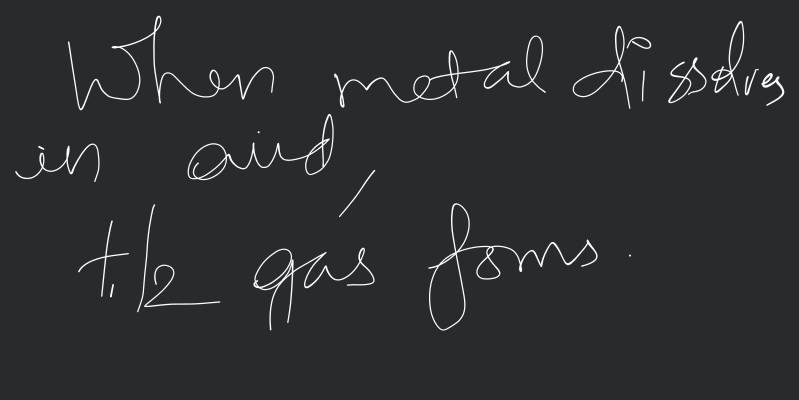 When metal dissolves
in acid,
H2 gas forms.